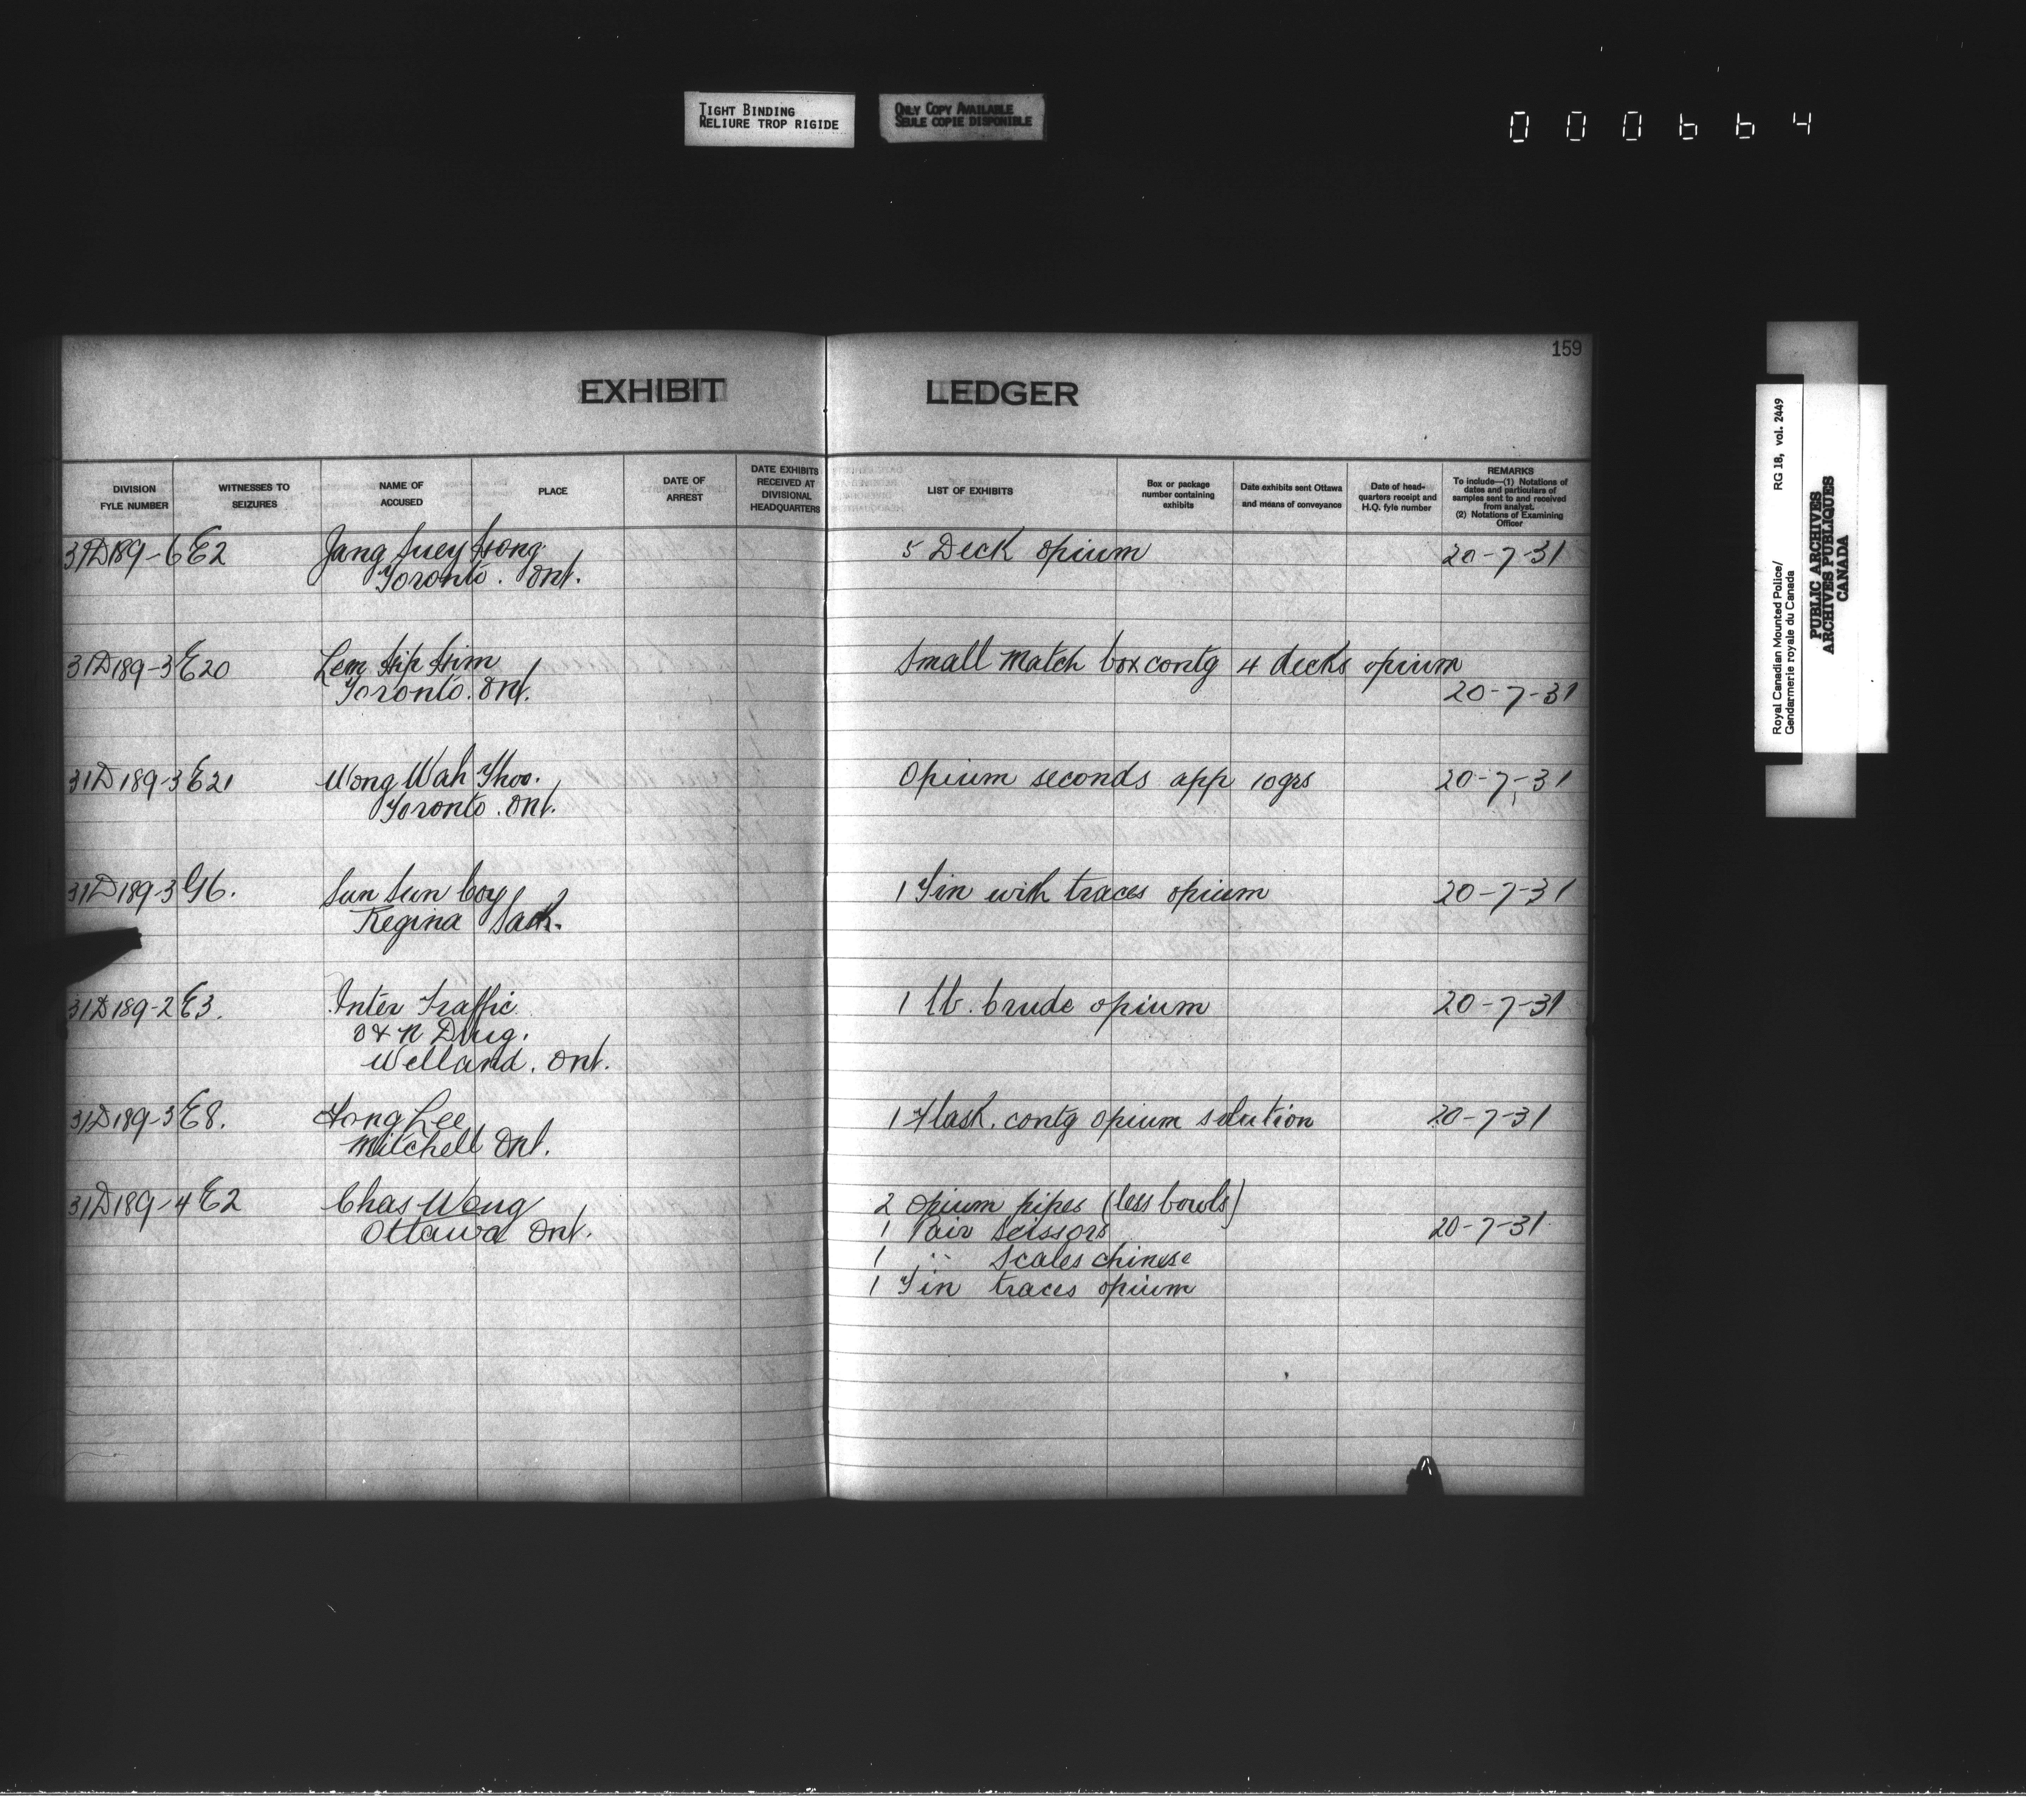 TIGHT BINDING
RELIURE TROP RIGIDE
ONLY COPY AVAILABLE
SEULE COPIE DISPONIBLE
000664
159
EXHIBIT LEDGER
DIVISION FYLE NUMBER
WITNESSES TO SEIZURES
NAME OF ACCUSED
PLACE
DATE OF ARREST
DATE EXHIBITS RECEIVED AT DIVISIONAL HEADQUARTERS
LIST OF EXHIBITS
Box or package number containing exhibits
Date exhibits sent Ottawa and means of conveyance
Date of head-quarters receipt and H.Q. fyle number
REMARKS
To include—(1) Notations of dates and particulars of samples sent to and received from analyst.
(2) Notations of Examining Officer
31D189-6E2 Jang Suey 5 Deck opium 20-7-31
Toronto. Ont.
31D189-3E20 Lem Small Match box contg 4 decks opium
Toronto. Ont. 20-7-31
31D189-3E21 Wong Wah Opium seconds app 10grs 20-7-31
Toronto. Ont.
31D189-3G6. Sun Sun Coy 1 Tin with traces opium 20-7-31
Regina Sask.
31D189-2E3. Inter Traffic 1 lb. Crude opium 20-7-31
O & N Drug.
Welland. Ont.
31D189-3E8. Lee 1 Flask. contg opium solution 20-7-31
Mitchell Ont.
31D189-4E2 Chas Wong 2 opium pipes (less bowls)
Ottawa Ont. 1 Pair scissors 20-7-31
1 " Scales chinese
1 Tin traces opium
Royal Canadian Mounted Police/ RG 18, vol. 2449
Gendarmerie royale du Canada
PUBLIC ARCHIVES
ARCHIVES PUBLIQUES
CANADA